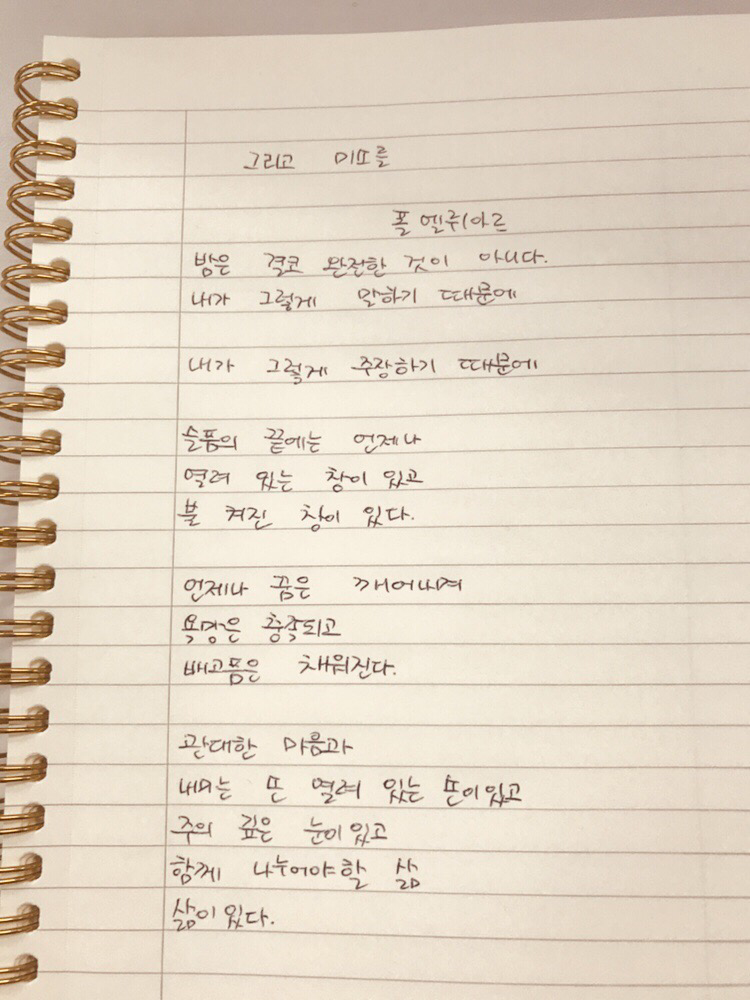 그리고 미소를
폴 엘뤼아르
밤은 결코 완전한 것이 아니다.
내가 그렇게 말하기 때문에
내가 그렇게 주장하기 때문에
슬픔의 끝에는 언제나
열려 있는 창이 있고
불 켜진 창이 있다.
언제나 꿈은 깨어나며
욕망은 충족되고
배고픔은 채워진다.
관대한 마음과
내미는 손 열려 있는 손이 있고
주의 깊은 눈이 있고
함께 나누어야할 삶
삶이 있다.